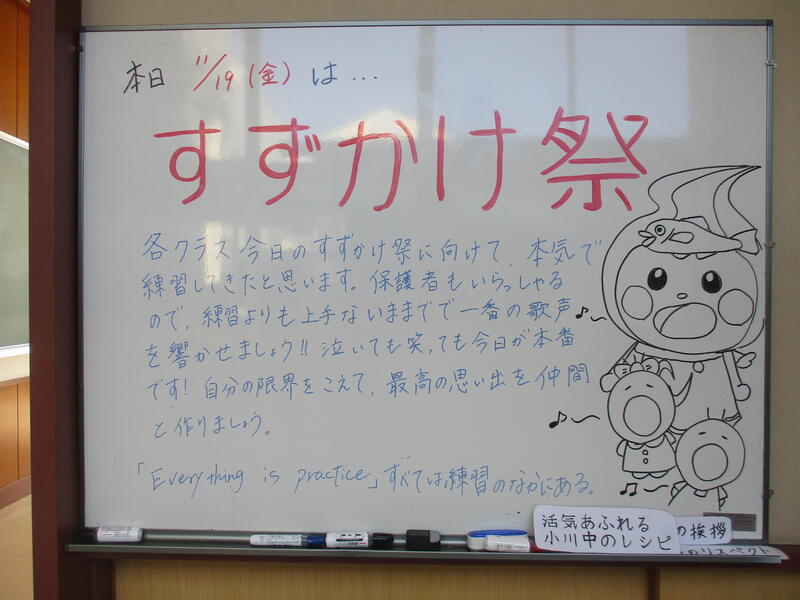 本日 11/19(金)は...
すずかけ祭
各クラス今日のすずかけ祭に向けて、本気で
練習してきたと思います。保護者もいらっしゃる
ので、練習よりも上手ないままでで一番の歌声
を響かせましょう!!泣いても笑っても今日が本番
です!自分の限界をこえて、最高の思い出を仲間
と作りましょう。
「Everything is practice」すべては練習のなかにある。
活気あふれる
小川中のレシピ
の挨拶
のリスペクト